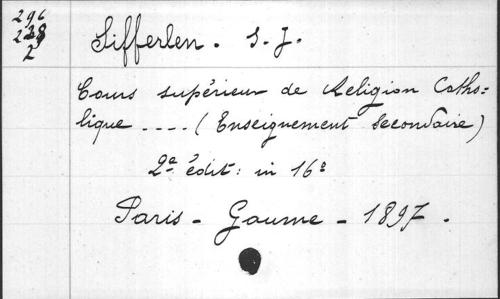 296
2
Sifferlen. S. J.
Cours supérieur de Religion Catho=
lique .... (Enseignement secondaire)
2ª édit: in 16º
Paris - Gaume - 1897.